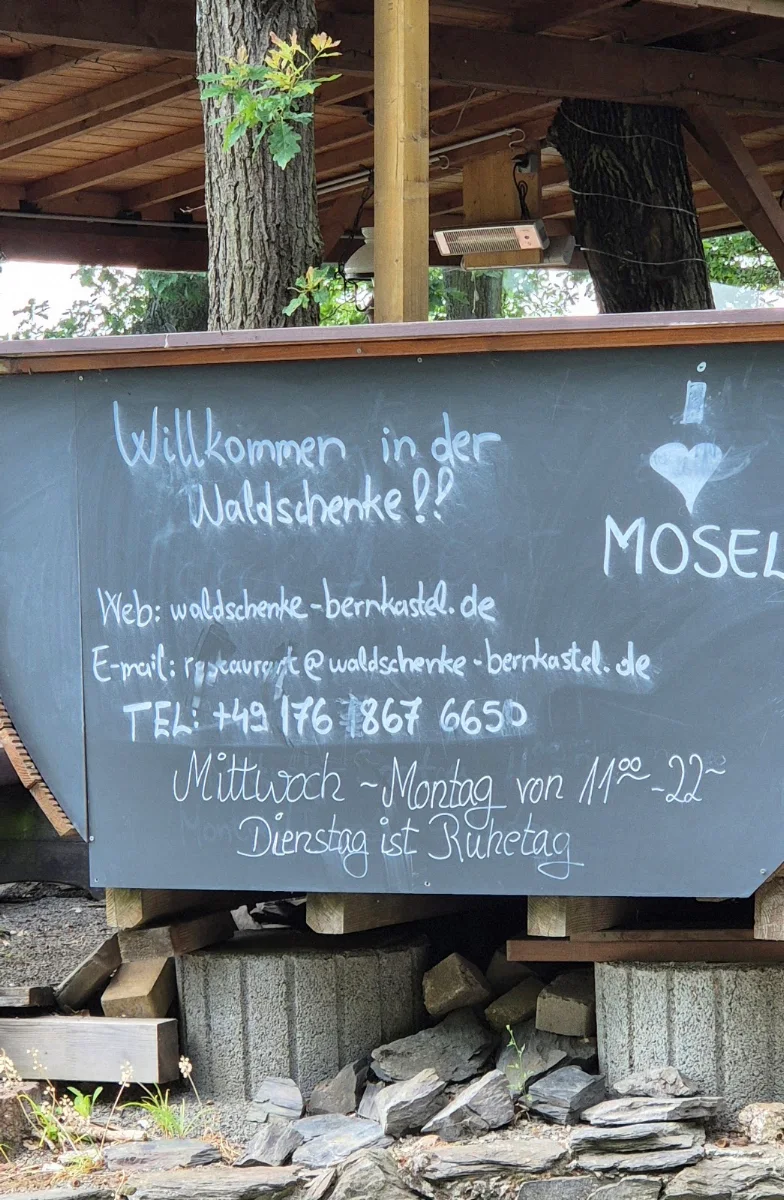 Willkommen in der
Waldschenke!!
i
♥
MOSEL
Web: waldschenke-bernkastel.de
E-mail: restaurant@waldschenke-bernkastel.de
TEL: +49 176 867 6650
Mittwoch ~ Montag von 11⁰⁰ - 22~
Dienstag ist Ruhetag